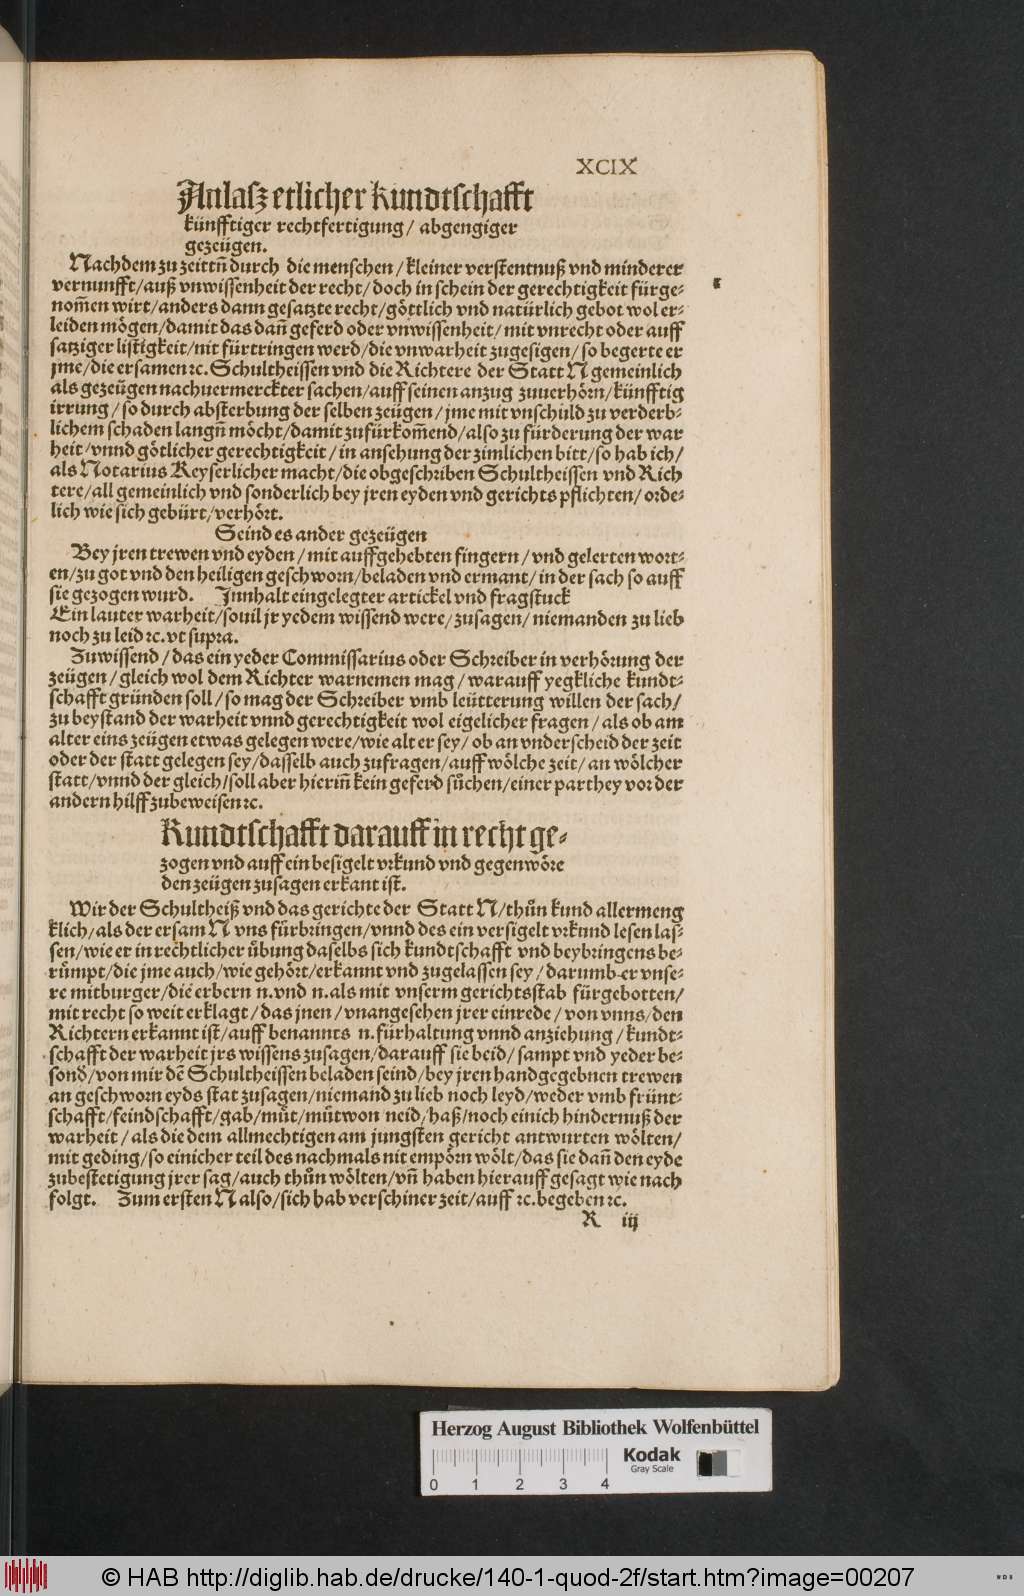 XCIX
Anlasz etlicher kundtschafft
künfftiger rechtfertigung/ abgengiger
gezeügen.
Nachdem zu zeittn̄ durch die menschen/kleiner verstentnuß vnd minderer
vernunfft/auß vnwissenheit der recht/doch in schein der gerechtigkeit fürge-
nom̄en wirt/anders dann gesatzte recht/göttlich vnd natürlich gebot wol er-
leiden mögen/damit das dan̄ geferd oder vnwissenheit/mit vnrecht oder auff
satziger listigkeit/nit fürtringen werd/die vnwarheit zugesigen/so begerte er
jme/die ersamen ⁊c. Schultheissen vnd die Richtere der Statt N gemeinlich
als gezeügen nachuermerckter sachen/auff seinen anzug zuuerhörn/künfftig
irrung/so durch absterbung der selben zeügen/jme mit vnschuld zu verderb-
lichem schaden langn̄ möcht/damit zufürkom̄end/also zu fürderung der war
heit/vnnd götlicher gerechtigkeit/in ansehung der zimlichen bitt/so hab ich/
als Notarius Keyserlicher macht/die obgeschriben Schultheissen vnd Rich
tere/all gemeinlich vnd sonderlich bey jren eyden vnd gerichts pflichten/orde-
lich wie sich gebürt/verhört.
Seind es ander gezeügen
Bey jren trewen vnd eyden/mit auffgehebten fingern/vnd gelerten wort-
en/zu got vnd den heiligen geschworn/beladen vnd ermant/in der sach so auff
sie gezogen wurd. Innhalt eingelegter artickel vnd fragstuck
Ein lauter warheit/souil jr yedem wissend were/zusagen/niemanden zu lieb
noch zu leid ⁊c. vt supra.
Zuwissend/das ein yeder Commissarius oder Schreiber in verhörung der
zeügen/gleich wol dem Richter warnemen mag/warauff yegkliche kundt-
schafft gründen soll/so mag der Schreiber vmb leütterung willen der sach/
zu beystand der warheit vnnd gerechtigkeit wol eigelicher fragen/als ob am
alter eins zeügen etwas gelegen were/wie alt er sey/ob an vnderscheid der zeit
oder der statt gelegen sey/dasselb auch zufragen/auff wölche zeit/an wölcher
statt/vnnd der gleich/soll aber hierin̄ kein geferd sůchen/einer parthey vor der
andern hilff zubeweisen ⁊c.
Kundtschafft darauff in recht ge-
zogen vnd auff ein besigelt vrkund vnd gegenwöre
den zeügen zusagen erkant ist.
Wir der Schultheiß vnd das gerichte der Statt N/thůn kund allermeng
klich/als der ersam N vns fürbringen/vnnd des ein versigelt vrkund lesen las-
sen/wie er in rechtlicher übung daselbs sich kundtschafft vnd beybringens be-
rümpt/die jme auch/wie gehört/erkannt vnd zugelassen sey/darumb er vnse-
re mitburger/die erbern n. vnd n. als mit vnserm gerichtsstab fürgebotten/
mit recht so weit erklagt/das jnen/vnangesehen jrer einrede/von vnns/den
Richtern erkannt ist/auff benannts n. fürhaltung vnnd anziehung/kundt-
schafft der warheit jrs wissens zusagen/darauff sie beid/sampt vnd yeder be-
sond̄/von mir dē Schultheissen beladen seind/bey jren handgegebnen trewen
an geschworn eyds stat zusagen/niemand zu lieb noch leyd/weder vmb frünt-
schafft/feindschafft/gab/můt/mütwon neid/haß/noch einich hindernuß der
warheit/als die dem allmechtigen am jungsten gericht antwurten wölten/
mit geding/so einicher teil des nachmals nit empörn wölt/das sie dan̄ den eyde
zubestetigung jrer sag/auch thůn wölten/vn̄ haben hierauff gesagt wie nach
folgt. Zum ersten N also/sich hab verschiner zeit/auff ⁊c. begeben ⁊c.
R iij
Herzog August Bibliothek Wolfenbüttel
0 1 2 3 4
Kodak
Gray Scale
© HAB http://diglib.hab.de/drucke/140-1-quod-2f/start.htm?image=00207